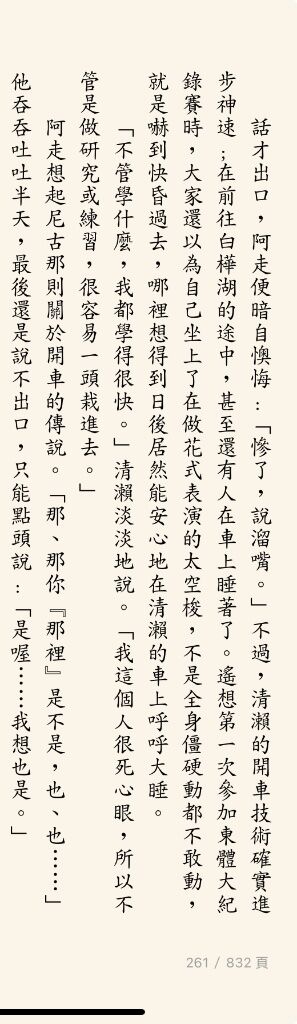 話才出口，阿走便暗自懊悔：「慘了，說溜嘴。」不過，清瀨的開車技術確實進
步神速；在前往白樺湖的途中，甚至還有人在車上睡著了。遙想第一次參加東體大紀
錄賽時，大家還以為自己坐上了在做花式表演的太空梭，不是全身僵硬動都不敢動，
就是嚇到快昏過去，哪裡想得到日後居然能安心地在清瀨的車上呼呼大睡。
「不管學什麼，我都學得很快。」清瀨淡淡地說。「我這個人很死心眼，所以不
管是做研究或練習，很容易一頭栽進去。」
阿走想起尼古那則關於開車的傳說。「那、那你『那裡』是不是，也、也……」
他吞吞吐吐半天，最後還是說不出口，只能點頭說：「是喔……我想也是。」
261 / 832 頁